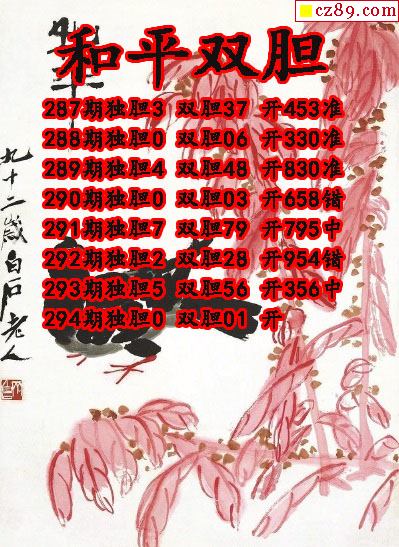 cz89.com
和平双胆
287期独胆3 双胆37 开453准
288期独胆0 双胆06 开330准
289期独胆4 双胆48 开830准
290期独胆0 双胆03 开658错
291期独胆7 双胆79 开795中
292期独胆2 双胆28 开954错
293期独胆5 双胆56 开356中
294期独胆0 双胆01 开
九十二岁白石老人